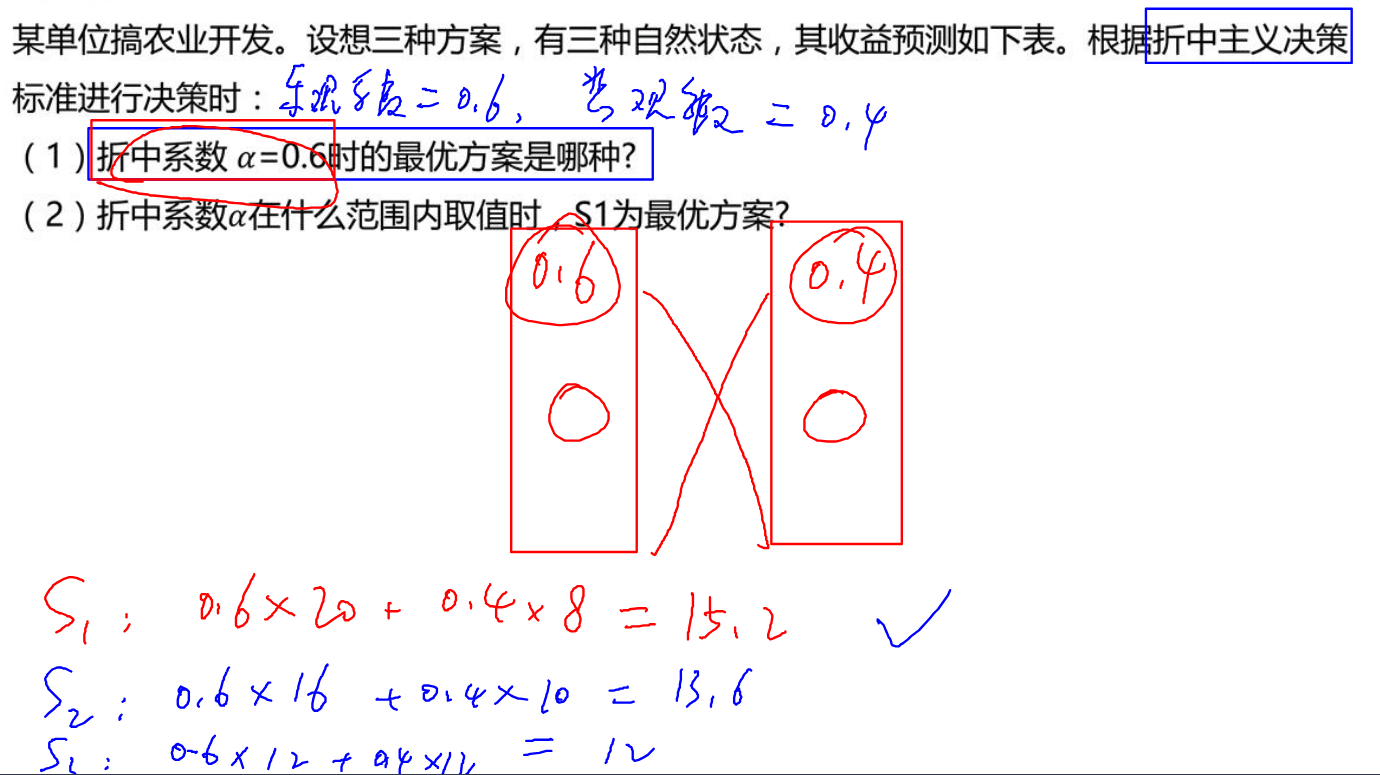 某单位搞农业开发。设想三种方案，有三种自然状态，其收益预测如下表。根据折中主义决策
标准进行决策时： 乐观系数=0.6, 悲观系数=0.4
（1）折中系数 α=0.6时的最优方案是哪种?
（2）折中系数α在什么范围内取值时，S1为最优方案?
0.6 0.4
S1: 0.6×20+0.4×8=15.2
S2: 0.6×16+0.4×10=13.6
0.6×12+0.4×12=12